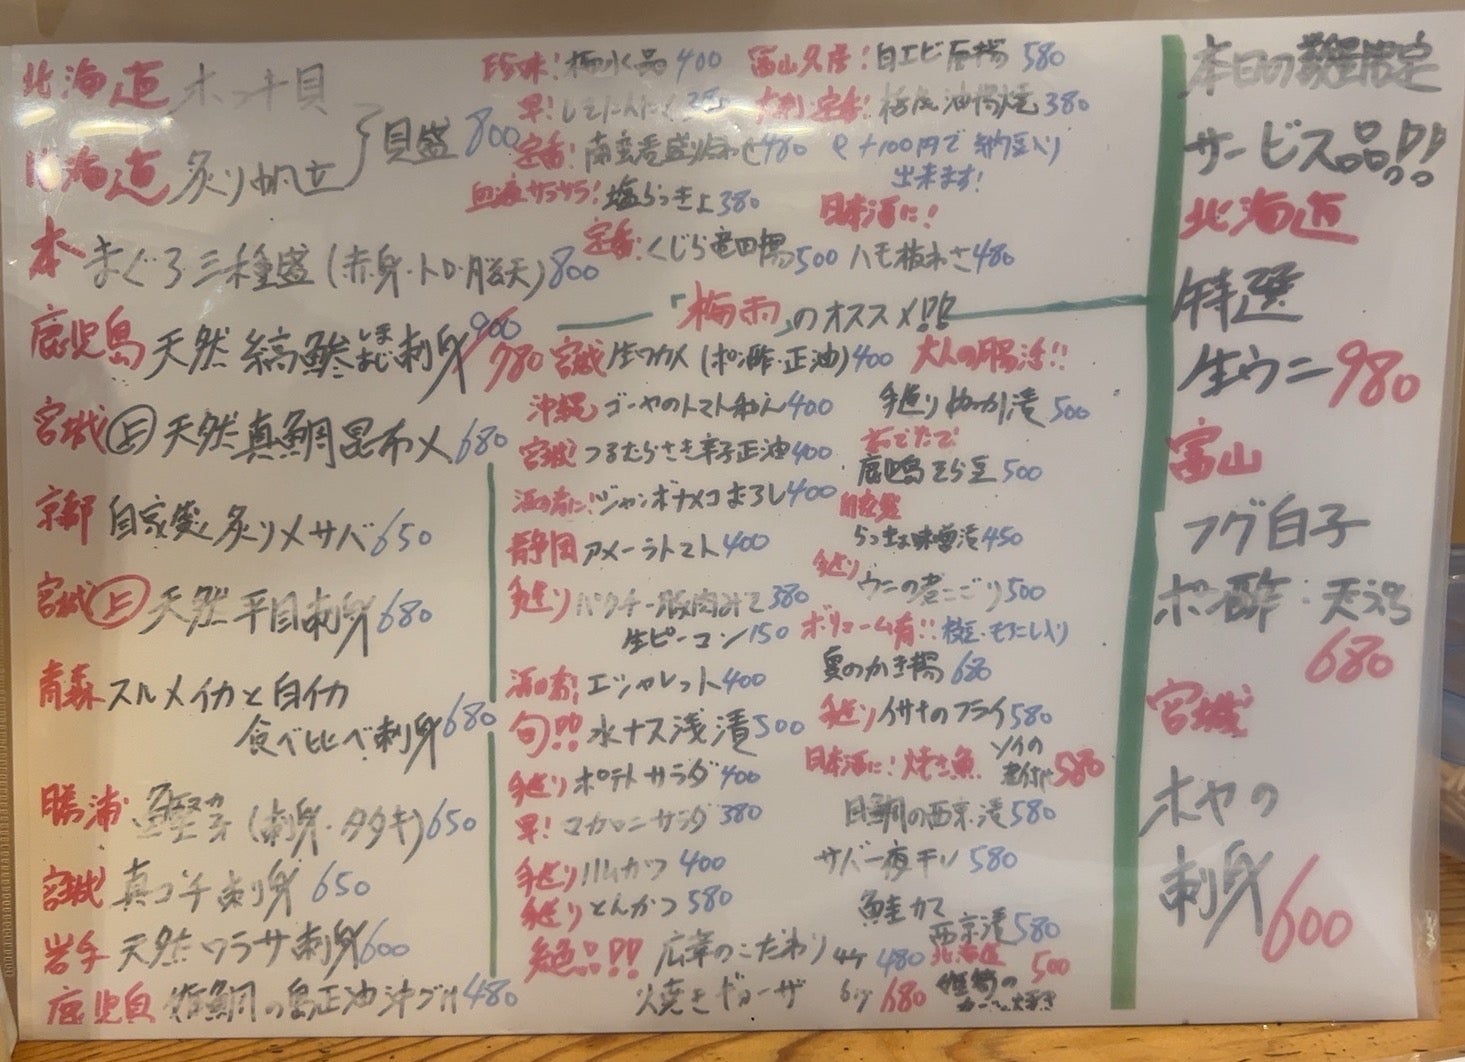 北海道 ホッキ貝
北海道 炙り帆立
貝盛 800
本 まぐろ三種盛(赤身・トロ・脳天)800
鹿児島 天然縞鯵しまあじ刺身 900 780
宮城 上 天然真鯛昆布〆 680
京都 自家製 炙り〆サバ 650
宮城 上 天然平目刺身 680
青森 スルメイカと白イカ
食べ比べ刺身 680
勝浦 (刺身・タタキ)650
宮城 真ゴチ刺身 650
岩手 天然ワラサ刺身 600
鹿児島 鯛の島正油沖づけ 480
珍味! 極水品 400
早!
定番! 南蛮者盛り合わせ 480
血液サラサラ! 塩らっきょ 380
定番! くじら竜田揚 500
富山名産! 白エビ唐揚 580
定番! 栃尾油揚焼 380
+100円で 納豆入り
出来ます!
日本酒に!
ハモ板わさ 480
「梅雨」のオススメ!!
宮城 生ワカメ(ポン酢・正油)400
沖縄 ゴーヤのトマト和え 400
宮城 つるむらさき辛子正油 400
酒の肴に! ジャンボナメコおろし 400
静岡 アメーラトマト 400
手造り パクチー豚肉みそ 380
生ピーマン 150
酒の肴! エシャレット 400
旬!! 水ナス浅漬 500
手造り ポテトサラダ 400
早! マカロニサラダ 380
手造り ハムカツ 400
手造り とんかつ 580
絶品!!! 広華のこだわり 4ケ 480
焼きギョーザ 6ケ 680
大人の腸活!!
手造り ぬか漬 500
茹でたて
鹿児島 そら豆 500
自家製
らっきょ味噌漬 450
手造り
ウニの煮こごり 500
ボリューム有!! 枝豆・モロコシ入り
夏のかき揚 680
手造り イサキのフライ 580
日本酒に! 焼き魚
ソイの
煮付け 580
目鯛の西京漬 580
サバ一夜干し 580
鮭カマ
西京漬 580
北海道
500
本日の数量限定
サービス品!!
北海道
特選
生ウニ 980
富山
フグ白子
ポン酢・天ぷら
680
宮城
ホヤの
刺身 600